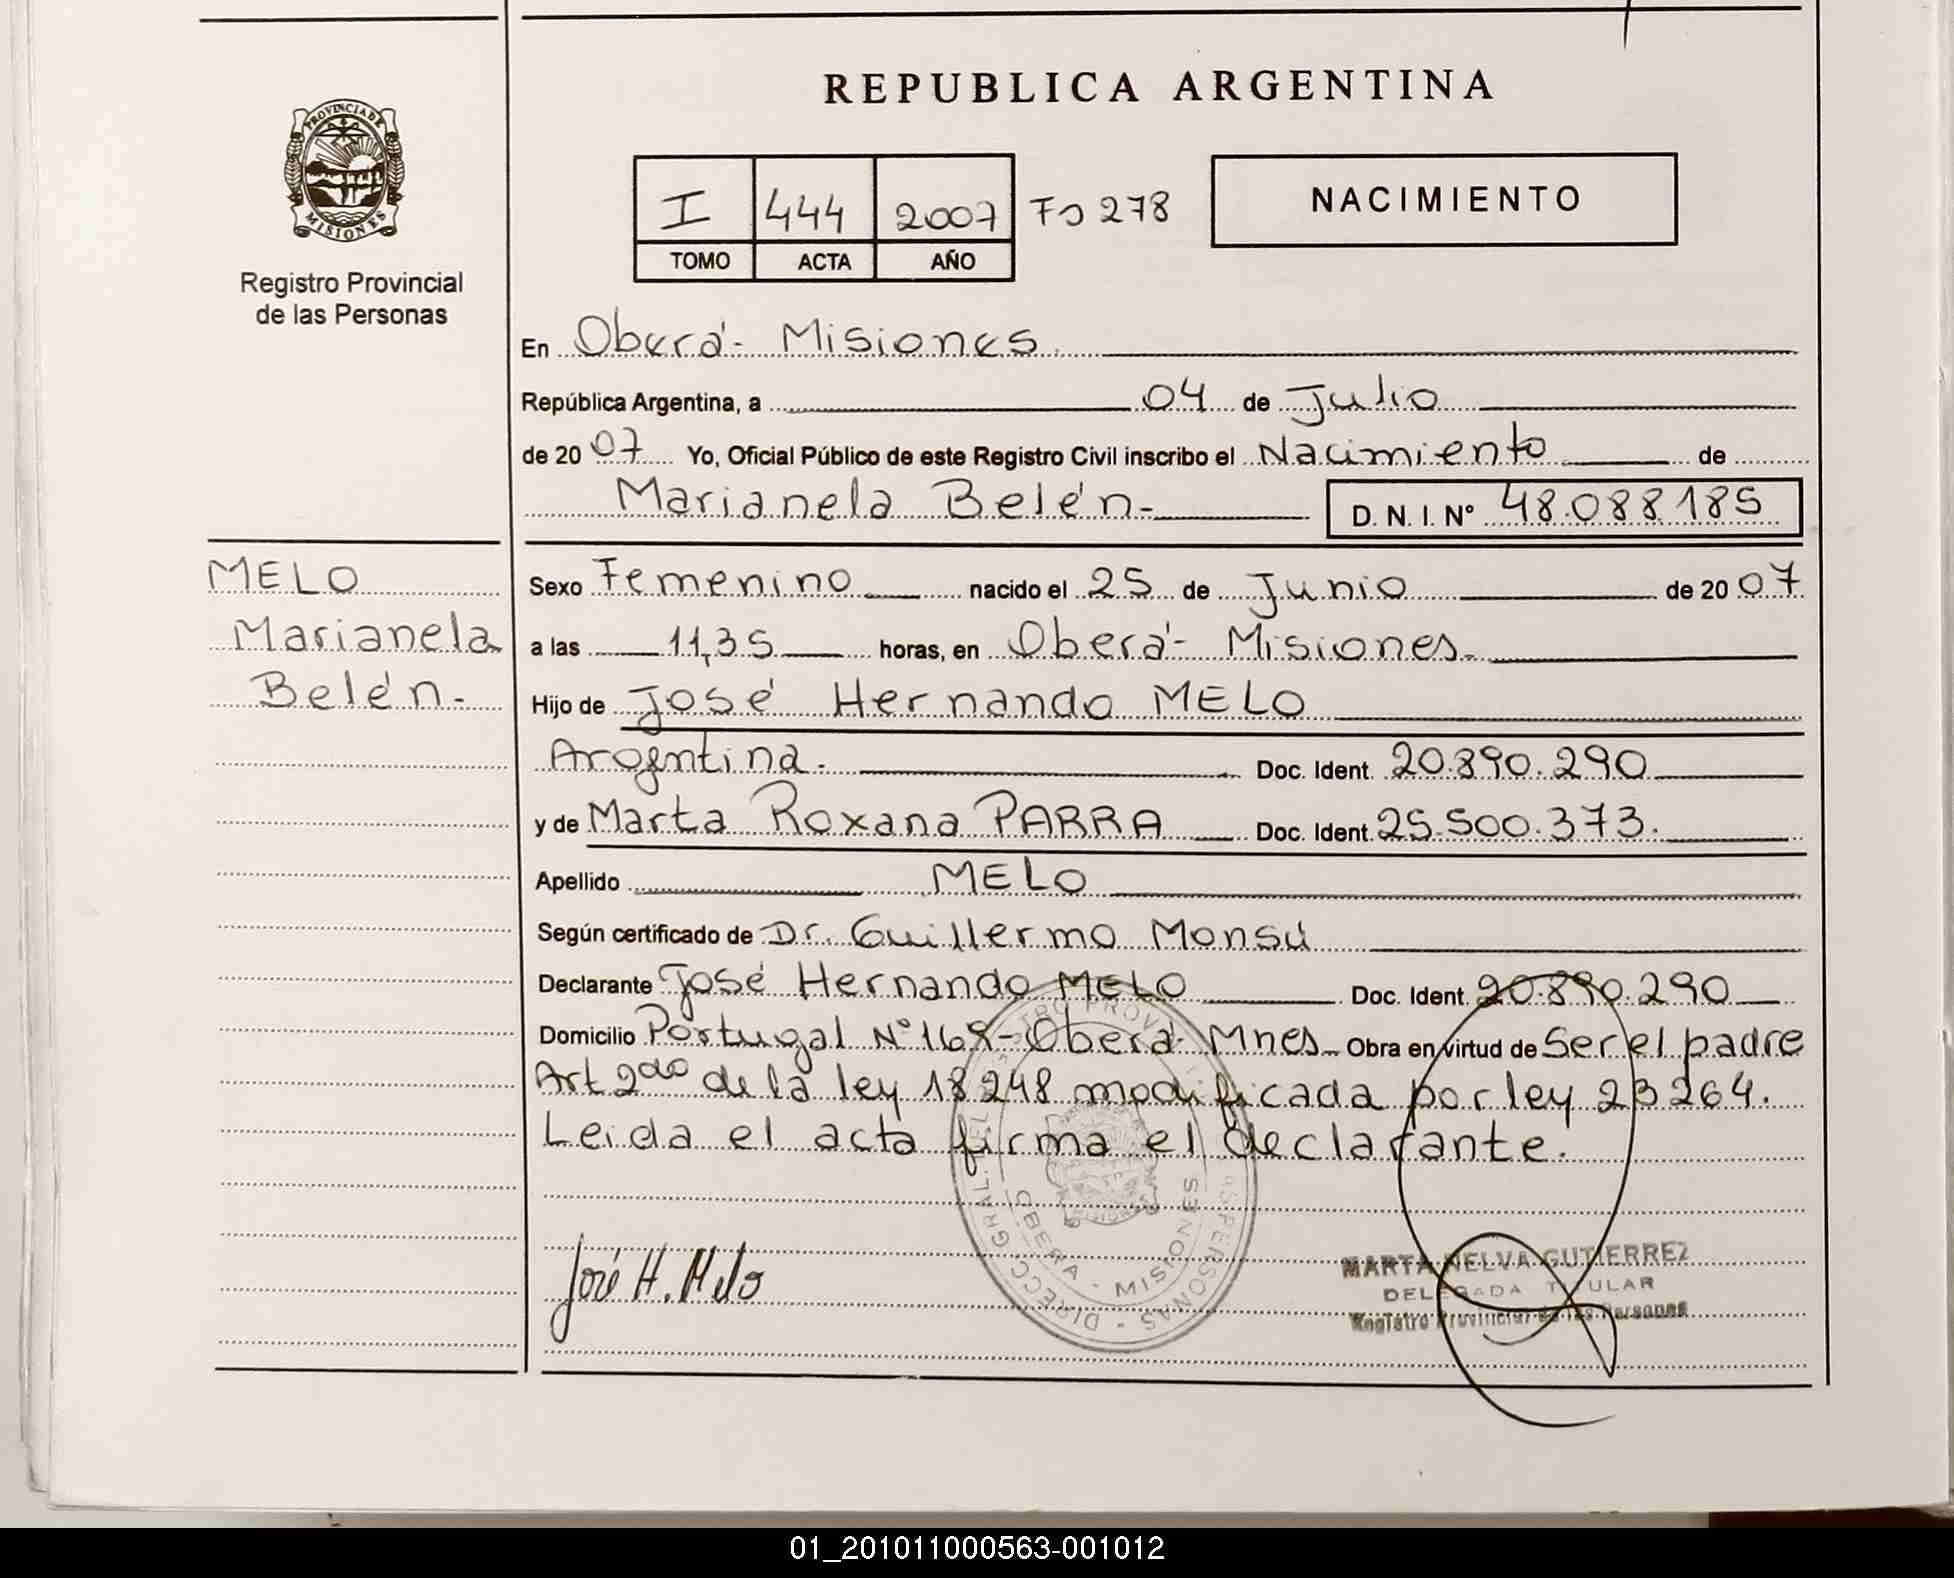 REPUBLICA ARGENTINA
PROVINCIA DE
MISIONES
Registro Provincial
de las Personas
I 444 2007 Fo 278
TOMO ACTA AÑO
NACIMIENTO
En Oberá- Misiones.
República Argentina, a 04 de Julio
de 2007 Yo, Oficial Público de este Registro Civil inscribo el Nacimiento de
Marianela Belén- D. N. I. Nº 48.088.185
MELO
Marianela
Belén-
Sexo Femenino nacido el 25 de Junio de 2007
a las 11,35 horas, en Oberá- Misiones-
Hijo de José Hernando MELO
Argentina. Doc. Ident. 20.890.290
y de Marta Roxana PARRA Doc. Ident. 25.500.373.
Apellido MELO
Según certificado de Dr. Guillermo Monsú
Declarante José Hernando MELO Doc. Ident. 20.890.290
Domicilio Portugal Nº 168- Oberá- Mnes- Obra en virtud de Ser el padre
Art 2do de la ley 18248 modificada por ley 23264.
Leida el acta firma el declarante.
José H. Melo
OBERA - MISIONES
MARTA NELVA GUTIERREZ
DELEGADA TITULAR
Registro Provincial de las Personas
01_201011000563-001012